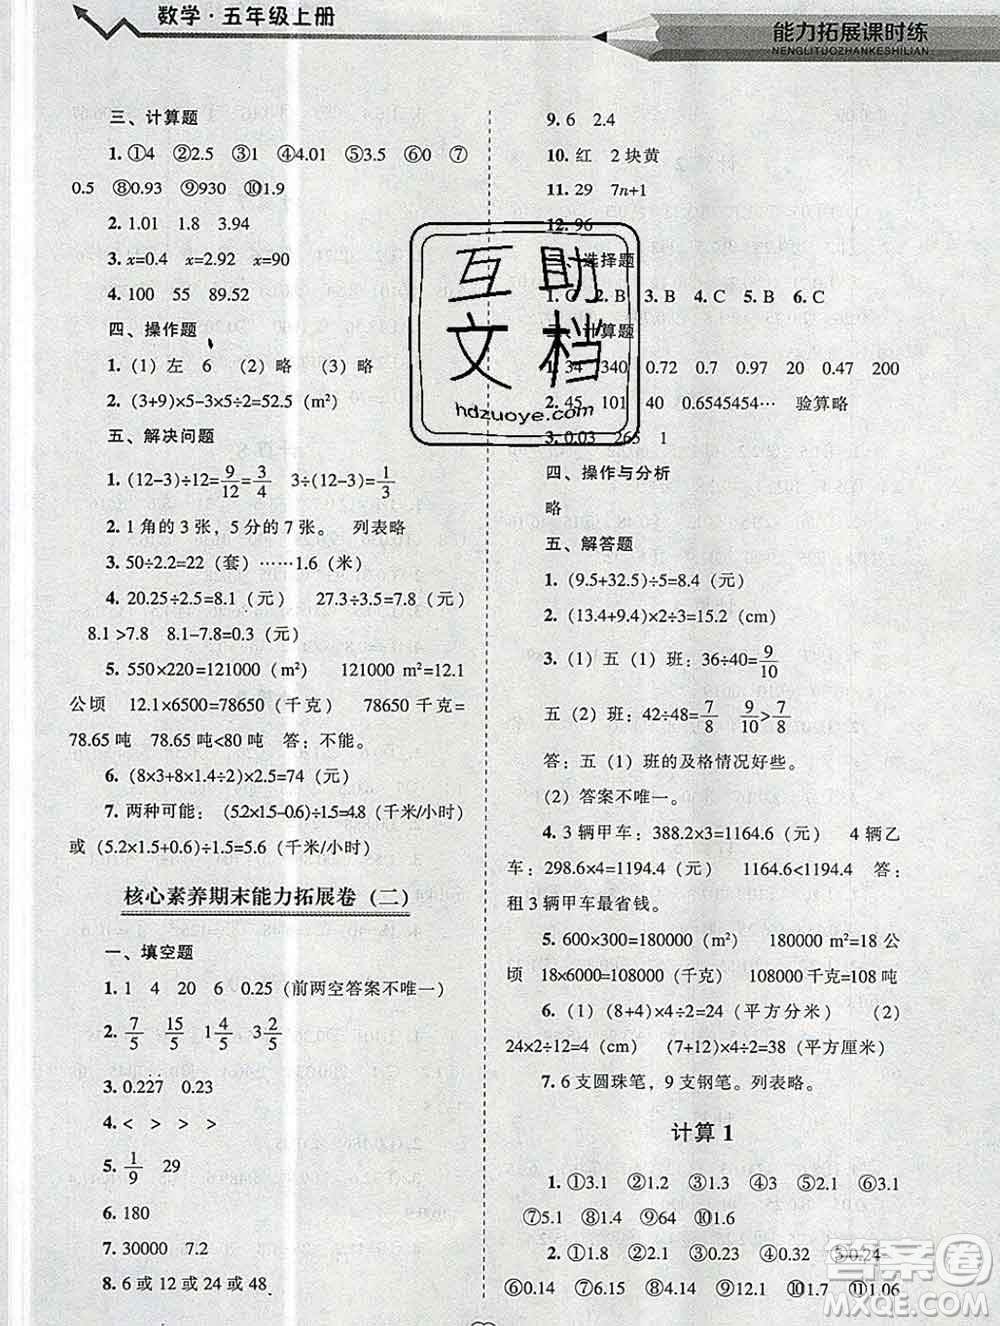 数学·五年级上册
能力拓展课时练
NENGLITUOZHANKESHILIAN
三、计算题
1. ①4 ②2.5 ③1 ④4.01 ⑤3.5 ⑥0 ⑦
0.5 ⑧0.93 ⑨930 ⑩1.9
2. 1.01 1.8 3.94
3. x=0.4 x=2.92 x=90
4. 100 55 89.52
四、操作题
1. (1) 左 6 (2) 略 (3) 略
2. (3+9)×5-3×5÷2=52.5 (m²)
五、解决问题
1. (12-3)÷12=9/12=3/4 3÷(12-3)=1/3
2. 1 角的 3 张，5 分的 7 张。 列表略
3. 50÷2.2=22 (套) ……1.6 (米)
4. 20.25÷2.5=8.1 (元) 27.3÷3.5=7.8 (元)
8.1 >7.8 8.1-7.8=0.3 (元)
5. 550×220=121000 (m²) 121000 m²=12.1
公顷 12.1×6500=78650 (千克) 78650 千克=
78.65 吨 78.65 吨<80 吨 答：不能。
6. (8×3+8×1.4÷2)×2.5=74 (元)
7. 两种可能： (5.2×1.5-0.6)÷1.5=4.8 (千米/小时)
或 (5.2×1.5+0.6)÷1.5=5.6 (千米/小时)
核心素养期末能力拓展卷 (二)
一、填空题
1. 1 4 20 6 0.25 (前两空答案不唯一)
2. 7/5 15/5 1 4/5 3 2/5
3. 0.227 0.23
4. < > > >
5. 1/9 29
6. 180
7. 30000 7.2
8. 6 或 12 或 24 或 48
9. 6 2.4
10. 红 2 块黄
11. 29 7n+1
12. 96
二、选择题
1. C 2. B 3. B 4. C 5. B 6. C
三、计算题
1. 34 340 0.72 0.7 0.97 20 0.47 200
2. 45 101 40 0.6545454… 验算略
3. 0.03 265 1
四、操作与分析
略
五、解答题
1. (9.5+32.5)÷5=8.4 (元)
2. (13.4+9.4)×2÷3=15.2 (cm)
3. (1) 五 (1) 班：36÷40=9/10
五 (2) 班：42÷48=7/8 9/10>7/8
答：五 (1) 班的及格情况好些。
(2) 答案不唯一。
4. 3 辆甲车：388.2×3=1164.6 (元) 4 辆乙
车：298.6×4=1194.4 (元) 1164.6<1194.4 答：
租 3 辆甲车最省钱。
5. 600×300=180000 (m²) 180000 m²=18 公
顷 18×6000=108000 (千克) 108000 千克=108 吨
6. (1) (8+4)×4÷2=24 (平方分米) (2)
24×2÷12=4 (cm) (7+12)×4÷2=38 (平方厘米)
7. 6 支圆珠笔，9 支钢笔。列表略。
计算 1
1. ①3.1 ②3.2 ③1.3 ④3.1 ⑤2.1 ⑥3.1
⑦5.1 ⑧1.4 ⑨64 ⑩1.6
2. ①1.8 ②2.3 ③0.24 ④0.32 ⑤0.24
⑥0.14 ⑦0.51 ⑧0.57 ⑨12 ⑩1.7 ⑪1.06
互助
文档
hdzuoye.com
答案圈
MXQE.COM